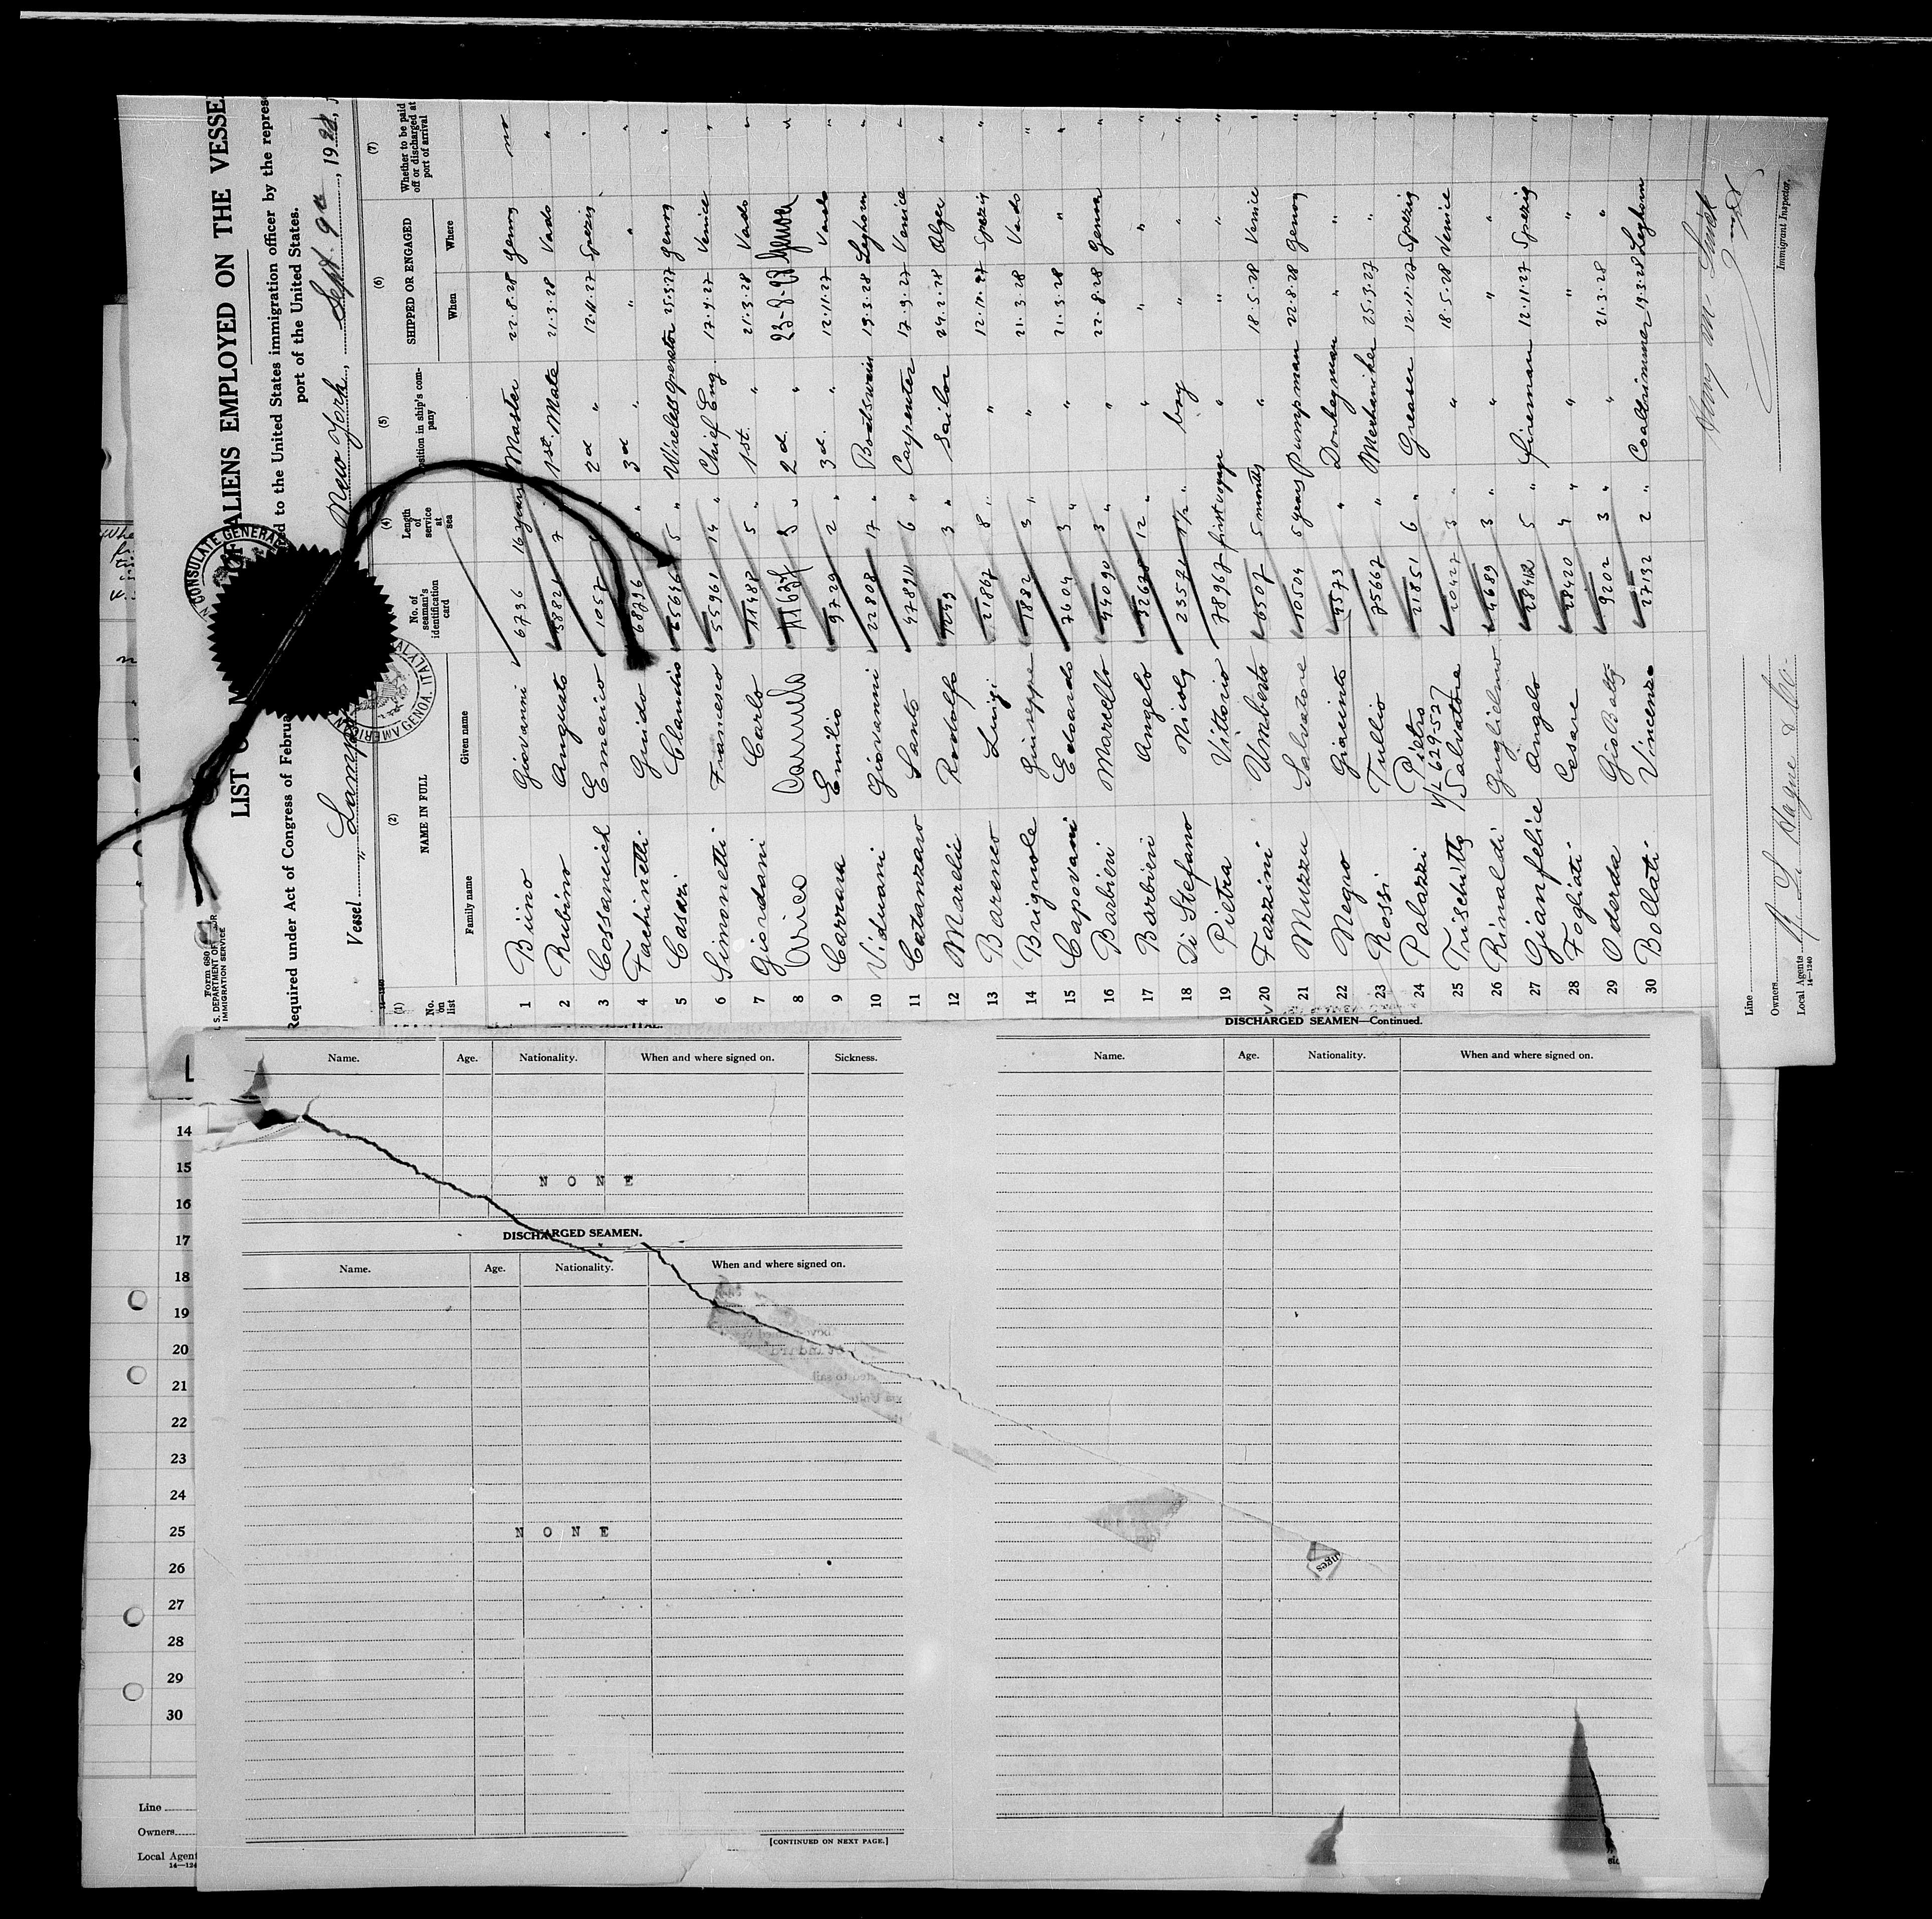 Form 680
U. S. DEPARTMENT OF LABOR
IMMIGRATION SERVICE
LIST OF ALIENS EMPLOYED ON THE VESSEL
Required under Act of Congress of February
to the United States immigration officer by the repres
port of the United States.
Vessel Lampo New York, Sept. 9th, 1928,
(1) (2) (4) (5) (6) (7)
No. on list NAME IN FULL No. of seaman's identification card Length of service at sea Position in ship's company SHIPPED OR ENGAGED Whether to be paid off or discharged at port of arrival
Family name Given name When Where
1 Biino Giovanni 6736 16 years Master 22.8.28 Genoa no
2 Rubino Augusto 7 " 1st. Mate 21.3.28 Vado "
3 Cossanich Emerico 1657 2d " 12.11.27 Spezia "
4 Fachinetti Guido 68796 " 3d " " " "
5 Casazi Claudio 25646 5 " Wireless operator 25.3.27 Genoa "
6 Simonetti Francesco 55961 14 " Chief Eng. 17.9.27 Venice "
7 Giordani Carlo 11488 5 " 1st. " 21.3.28 Vado "
8 Arico Carmelo " 2d. " Genova "
9 Carrara Emilio 9729 2 " 3d. " 12.11.27 Vado "
10 Viduani Giovanni 22808 17 " Boatswain 19.3.28 Leghorn "
11 Catanzaro Santo 47891 6 " Carpenter 17.9.27 Venice "
12 Marelii Rodolfo 3 " Sailor 24.2.28 Alger "
13 Bareneo Luigi 21867 8 " " 12.11.27 Spezia "
14 Brignole Giuseppe 1882 3 " " 21.3.28 Vado "
15 Capovani Edoardo 7604 3 " " 21.3.28 " "
16 Barbieri Marcello 44090 3 " " 22.8.28 Genoa "
17 Barbieri Angelo 32628 12 " " " " "
18 Di Stefano Nicola 23571 1 1/2 " boy " " "
19 Pietra Vittorio 78967 first voyage " " " "
20 Fazzini Umberto 6507 5 months " 18.5.28 Venice "
21 Muzzu Salvatore 10504 5 years Pumpman 22.8.28 Genoa "
22 Negro Giacinto 4573 " Donkeyman " " "
23 Rossi Tullio 75667 " Mechaniker 25.3.27 " "
24 Palazzi Pietro 21851 6 " Greaser 12.11.27 Spezia "
V/L 629-527
25 Trischitta Salvatore 20427 3 " " 18.5.28 Venice "
26 Rinaldi Guglielmo 4689 3 " " " " "
27 Gianfelice Angelo 28412 5 " Fireman 12.11.27 Spezia "
28 Fogliati Cesare 28420 4 " " " " "
29 Oderda Gio Batta 9202 3 " " 21.3.28 " "
30 Bollati Vincenzo 27132 2 " Coaltrimmer 19.3.28 Leghorn
Line
Owners
Local Agents
14—1240
Immigrant Inspector.
CONSULATE GENERAL
AMERICAN
GENOA, ITALY
Name. Age. Nationality. When and where signed on. Sickness.
N O N E
DISCHARGED SEAMEN.
Name. Age. Nationality. When and where signed on.
N O N E
[CONTINUED ON NEXT PAGE.]
DISCHARGED SEAMEN—Continued.
Name. Age. Nationality. When and where signed on.
nges
14
15
16
17
18
19
20
21
22
23
24
25
26
27
28
29
30
Line
Owners
Local Agent
14—124